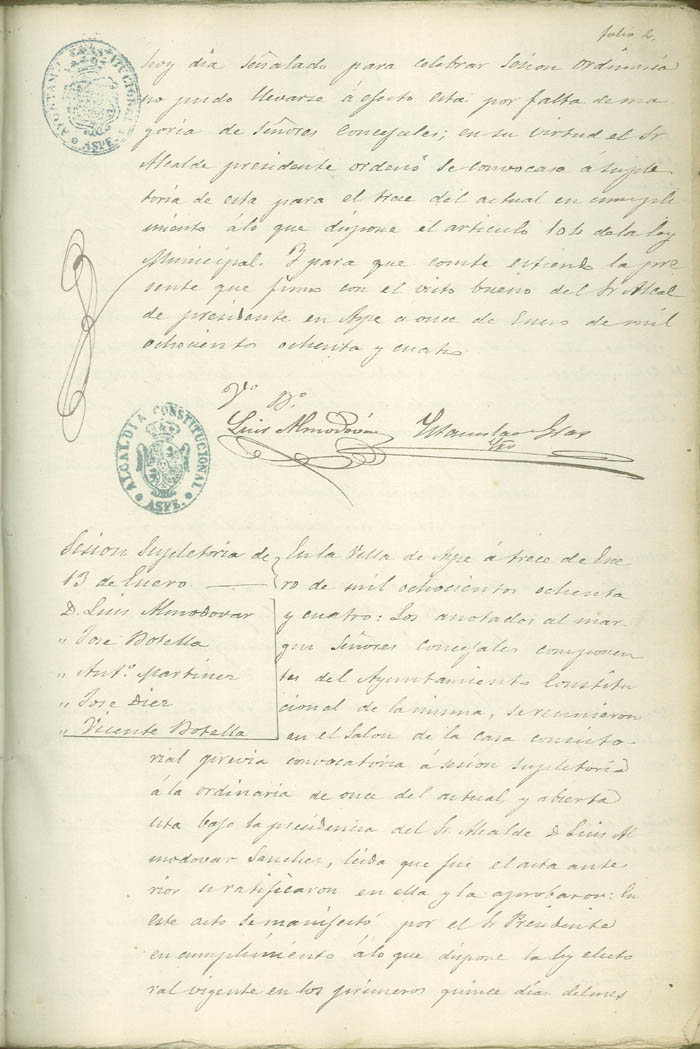 folio 2.
AYUNTAMTO CONSTITUCIONAL
* ASPE. *
hoy dia señalado para celebrar sesion ordinaria
no pudo llevarse á efecto esta por falta de ma
yoria de Señores Concejales; en su virtud el Sr
Alcalde presidente ordenó se convocase a suple
toria de esta para el trece del actual en cumpli
miento álo que dispone el articulo 104 de la ley
Municipal. Y para que conste estiendo la pre
sente que firmo con el visto bueno del Sr Alcal
de presidente en Aspe a once de Enero de mil
ochocientos ochenta y cuatro
Vº Bº
Luis Almodóvar Estanislao Gras
Srio
ALCALDIA CONSTITUCIONAL
* ASPE. *
Sesion Supletoria de
13 de Enero.
D. Luis Almodovar
" José Botella
" Antº. Martinez
" José Diez
" Vicente Botella
En la Villa de Aspe á trece de Ene
ro de mil ochocientos ochenta
y cuatro: Los anotados al mar
gen Señores Concejales componen
tes del Ayuntamiento Constitu
cional de la misma, se reunieron
en el Salon de la casa consisto
rial previa convocatoria á sesion supletoria
á la ordinaria de once del actual, y abierta
esta bajo la presidencia del Sr. Alcalde D. Luis Al
modovar Sanchez, leida que fue el acta ante
rior se ratificaron en ella y la aprobaron: En
este acto se manifestó por el Sr Presidente
en cumplimiento álo que dispone la ley electo
ral vigente en los primeros quince dias del mes